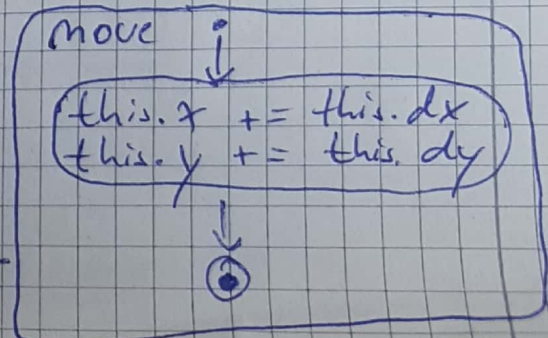 move
this.x += this.dx
this.y += this.dy